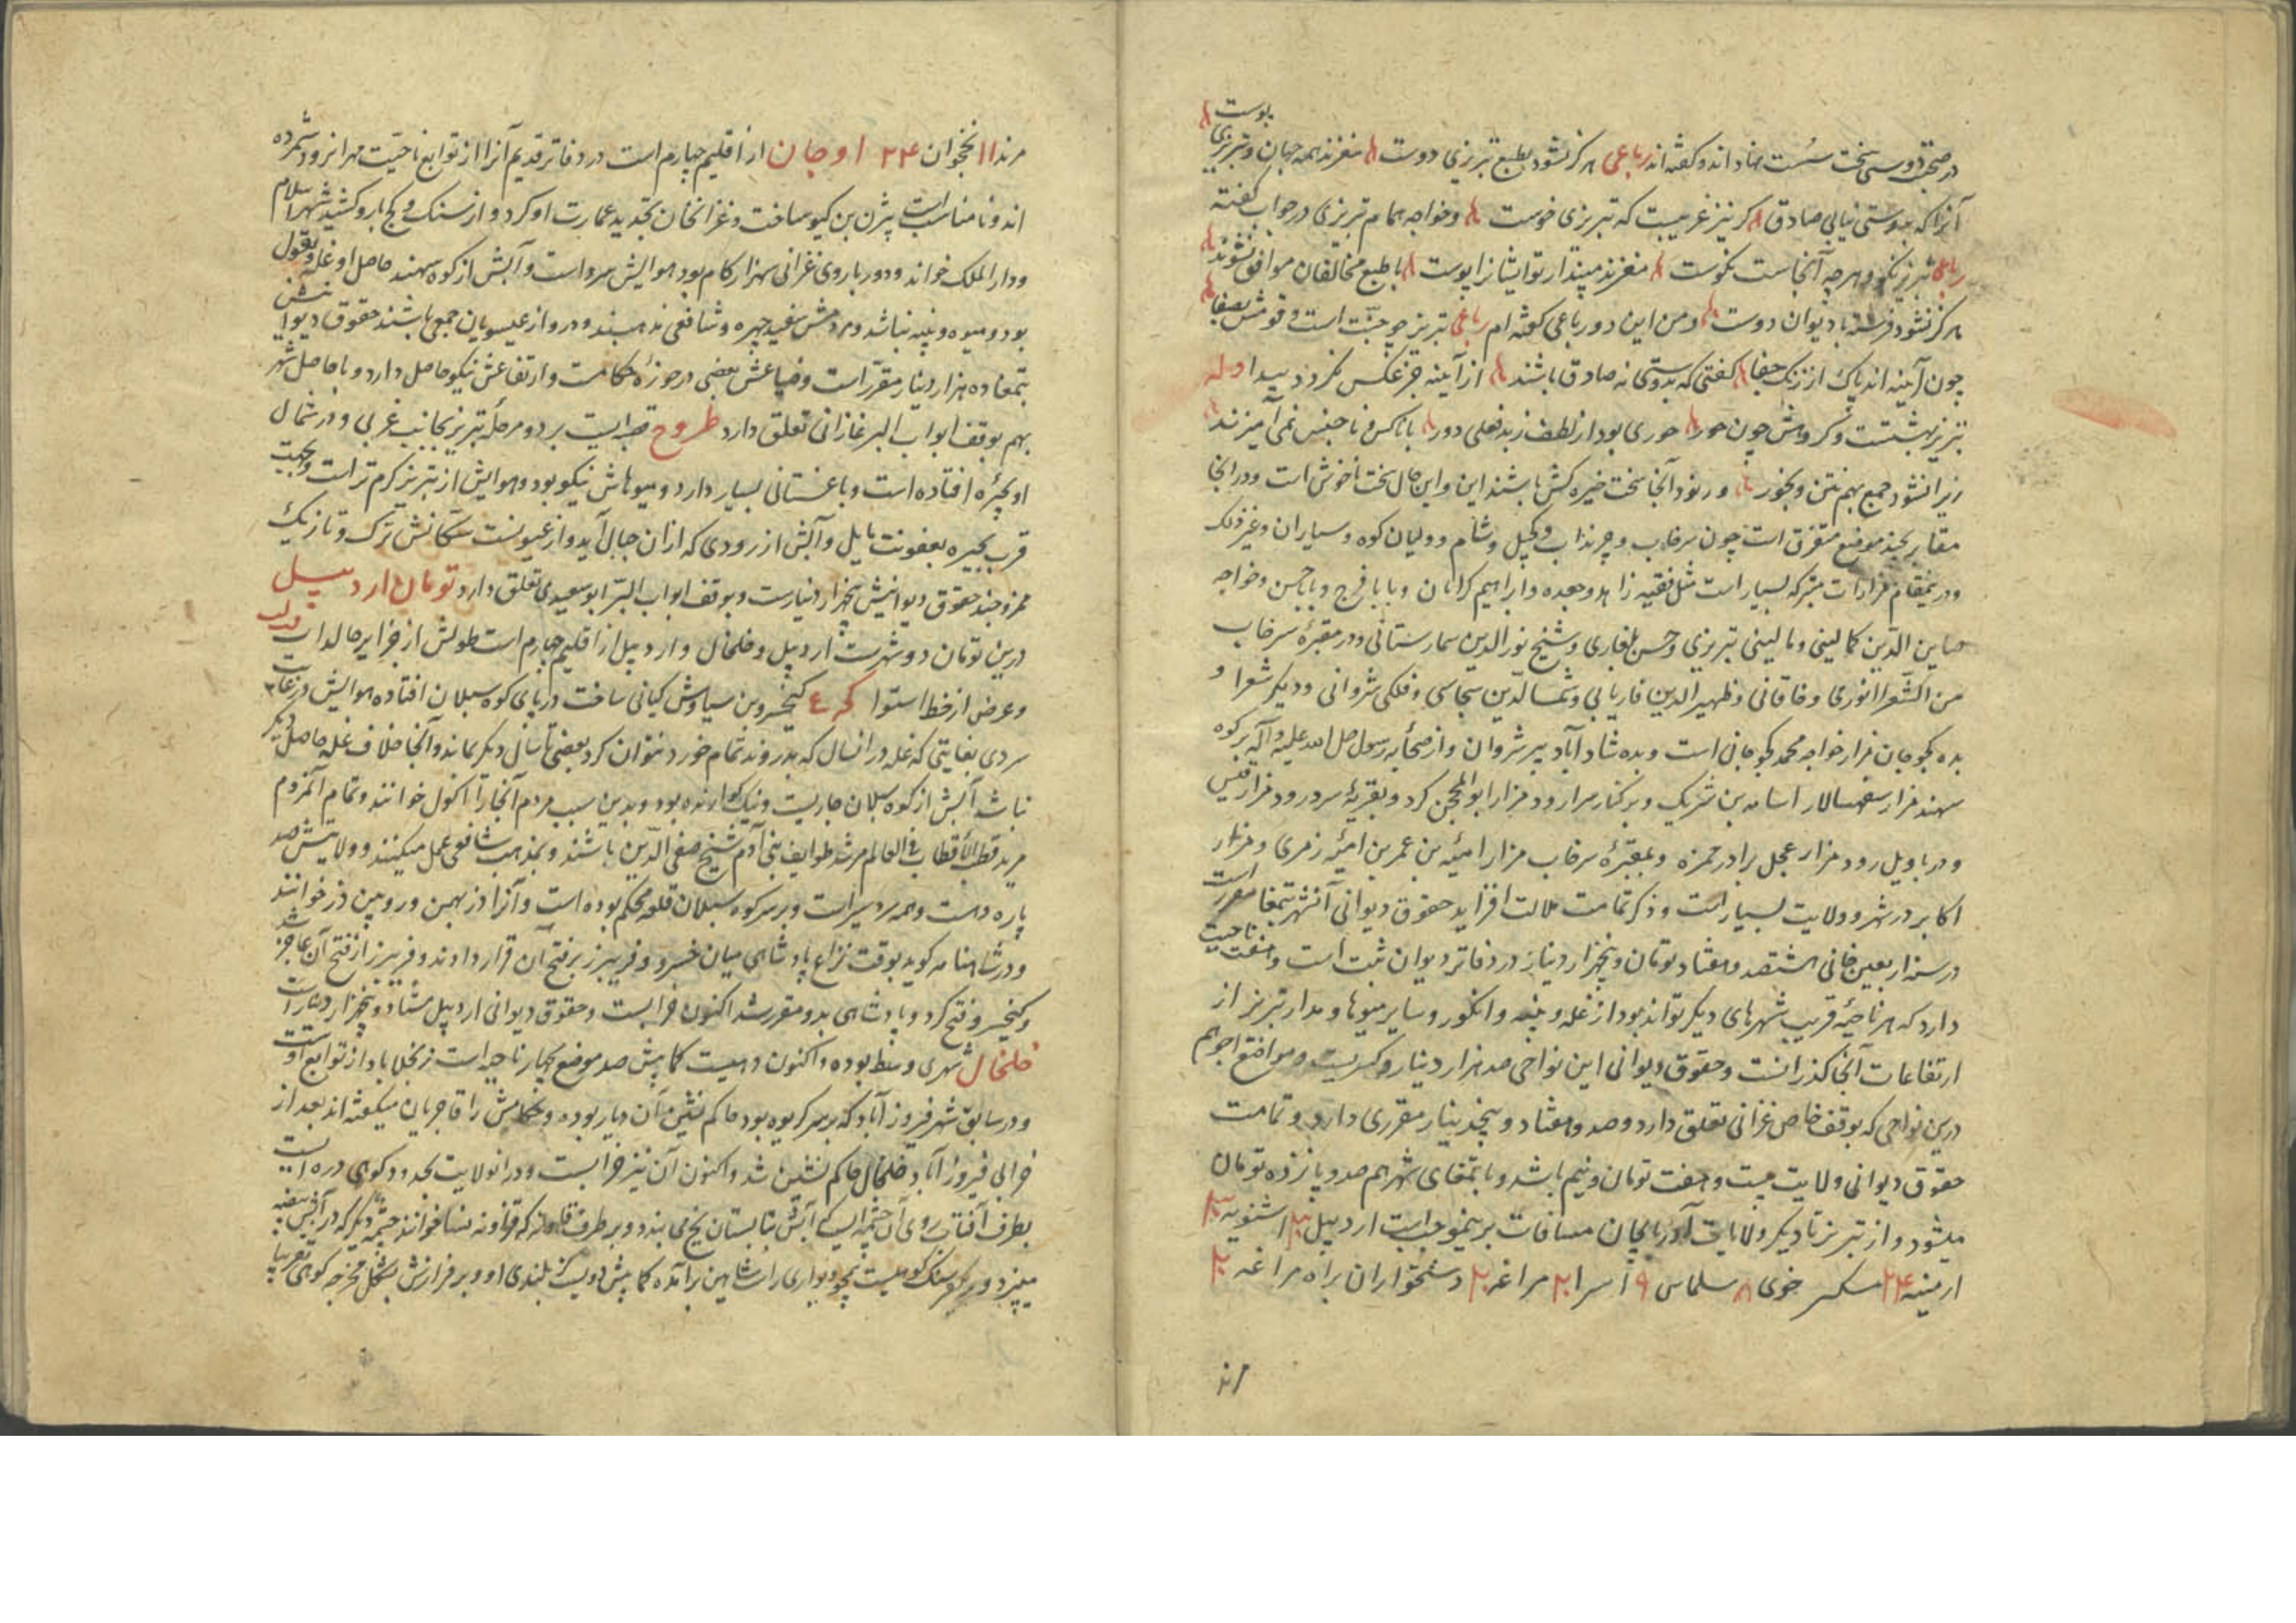 در صحبت و دوستی سخت سست نهاد اند و گفته اند رباعی هرگز نشود بطبع تبریزی دوست مغزند همه جهان و تبریزی پوست
آنرا که بدوستی نیابی صادق گر نیز غریبست که تبریزی خوست و خواجه همام تبریزی در جواب گفته
رباعی تبریز نکو و هرچه آنجاست نکوست مغزند مپندار تو ایشانرا پوست با طبع مخالفان موافق نشوند
هرگز نشود فرشته با دیوان دوست و من این دو رباعی گفته ام رباعی تبریز چو جنت است و قومش بصفا
چون آینه اند پاک از زنگ جفا گفتی که بدوستی نه صادق باشند از آینه جز عکس نگردد پیدا وله
تبریز بهشتست و گروهش چون حور حوری بود از لطف ز بد فعلی دور با ناکس و ناجنس نمی آمیزند
زیرا نشود جمع بهم نتن و بخور و رنود آنجا سخت خیره کش باشند این و این حال سخت ناخوش است و در آنجا
مقابر بچند موضع متفرق است چون سرخاب و چرنداب و کجیل و شام و ولیان کوه و سیاران و غیر ذلک
و درین مقام مزارات متبرکه بسیار است مثل فقیه زاهد و جعده و ابراهیم کراهان و بابا فرج و بابا حسن و خواجه
صاین الدین کمالینی و مالینی تبریزی و حسن بلغاری و شیخ نور الدین سمارستانی و در مقبره سرخاب
من الشعرا انوری و خاقانی و ظهیر الدین فاریابی و شمس الدین سجاسی و فلکی شروانی و دیگر شعرا و
بده کجوجان مزار خواجه محمد کجوجانی است و بده شاد آباد پیر شروان و از صحابه رسول صل الله علیه و آله بر کوه
سهند مزار سفهسالار اسامه بن شریک و بر کنار سراو رود مزار ابو المحجن کرد و بقریه سرورود مزار قیس
و در باویل رود مزار عجل برادر حمزه و بمقبره سرخاب مزار امیه بن عمر بن امیه زمری و مزار
اکابر در شهر و ولایت بسیار است و ذکر تمامت ملالت افزاید حقوق دیوانی آنشهر بتمغا مقرر است
در سنه اربعین خانی هشتصد و هفتاد تومان و پنجهزار دینار در دفاتر دیوان ثبت است و هفت ناحیت
دارد که هر ناحیه قریب شهرهای دیگر تواند بود از غله و پنبه و انگور و سایر میوها و مدار تبریز از
ارتفاعات آنجا گذرانست و حقوق دیوانی این نواحی صد هزار دینار و کسریست و مواضع اجوهم
درین نواحی که بوقف خاص غزانی تعلق دارد و صد و هفتاد و پنجدینار مقرری دارد و تمامت
حقوق دیوانی ولایت بیست و هفت تومان و نیم باشد و با تمغای شهر هم صد و پانزده تومان
میشود و از تبریز تا دیگر ولایات آذربایجان مسافات برینموجب است اردبیل ۳۰ اشنویه ۳۰
ارمینه ۲۴ خوی ۸ سلماس ۹ سرا ۲۰ مراغه ۲۰ دهخوارقان براه مراغه ۲۰
مرند
مرند ۱۱ نخجوان ۲۴ اوجان از اقلیم چهارم است در دفاتر قدیم آنرا از توابع ناحیت مهرانرود شمرده
اند و نا مناسب است بیژن بن گیو ساخت و غزانخان تجدید عمارت او کرد و از سنک و گچ بارو کشید شهر اسلام
و دار الملک خواند و دور باروی غزانی سهزار گام بود هوایش سرد است و آبش از کوه سهند حاصل او غله و بقول
بود و میوه و پنبه نباشد و مردمش سفید چهره و شافعی مذهبند و درو از عیسویان جمعی باشند حقوق دیوانیش
بتمغا ده هزار دینار مقرر است و ضیاعش بعضی در حوزه حکامت و ارتفاعش نیکو حاصل دارد و با حاصل شهر
بهم بوقف ابواب البر غازانی تعلق دارد طروج قصبه ایست بر دو مرحله تبریز بجانب غربی و در شمال
او بحیره افتاده است و باغستانی بسیار دارد و میوهاش نیکو بود و هوایش از تبریز گرم تر است و بجهت
قرب بحیره بعفونت مایل و آبش از رودی که از آن جبال آید و از عیونست سکانش ترک و تازیک
ممزوجند حقوق دیوانیش پنجهزار دینارست و بوقف ابواب البر ابو سعیدی تعلق دارد تومان اردبیل
درین تومان دو شهرست اردبیل و خلخال و اردبیل از اقلیم چهارم است طولش از جزایر خالدات فدل
و عرض از خط استوا کیخسرو بن سیاوش کیانی ساخت در پای کوه سبلان افتاده هوایش در غایت
سردی بغایتی که غله در انسال که بدروند تمام خورد نتوان کرد بعضی تا سال دیگر بماند و آنجا خلاف غله حاصلی دیگر
نباشد آبش از کوه سبلان جاریست و نیک گوارنده بود و بدین سبب مردم آنجا را اکول خوانند و تمام آنمردم
مرید قطب الاقطاب فی العالم مرشد طوایف بنی آدم شیخ صفی الدین باشند و بمذهب شافعی عمل میکنند و ولایتش صد
پاره ده است و همه سردسیر است و بر سر کوه سبلان قلعه محکم بوده است و آنرا دز بهمن و رویین دز خوانند
و در شاهنامه گوید بوقت نزاع پادشاهی میان خسرو و فریبرز بر فتح آن قرار دادند و فریبرز از فتح آن عاجز شد
و کیخسرو فتح کرد و پادشاهی بدو مقرر شد اکنون خرابست و حقوق دیوانی اردبیل هشتاد و پنجهزار دینار است
خلخال شهری وسط بوده و اکنون دهیست کمابیش صد موضع بچهار ناحیه است زنجلاباد از توابع اوست
و در سابق شهر فیروز آباد که بر سر گریوه بود حاکم نشین آن دیار بوده و حکامش را قاجریان میگفته اند بعد از
خرابی فیروز آباد خلخال حاکم نشین شد و اکنون آن نیز خرابست و در انولایت بحدود کوهی دره ایست
بطرف آفتاب روی آن چشمه ایست که آبش بتابستان یخ می بندد و بر طرف چشمه دیگر که در آبش بیضه
میپزد و در سنگ کوهیست همچو دیواری راست این برآمده کمابیش دویست گز بلندی او و بر فرازش بشکل مخرجه کوهی تقریبا